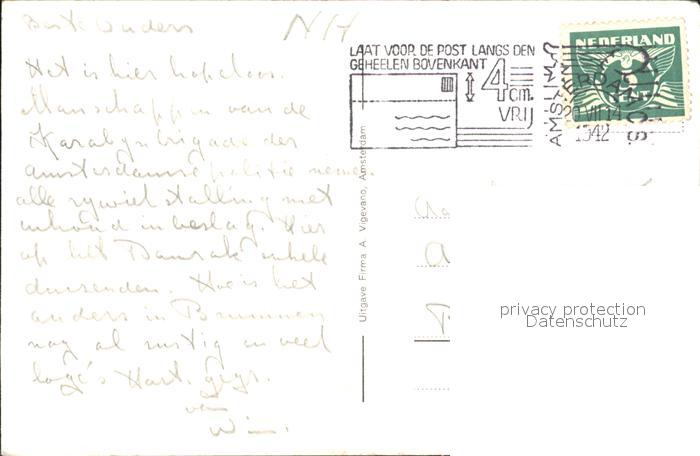 Beste Ouders
NH
Het is hier hopeloos.
Manschappen van de
Karabijnbrigade der
amsterdamse politie nemen
alle rijwielstalling met
inhoud in beslag. Hier
op het Damrak enkele
duizenden. Hoe is het
anders in Brummen
nog al rustig en veel
logé's Hart. gegr.
van
Wim.
LAAT VOOR DE POST LANGS DEN
GEHEELEN BOVENKANT
4 cm.
VRIJ
NEDERLAND
1942
Uitgave Firma A. Vigevano, Amsterdam
privacy protection
Datenschutz